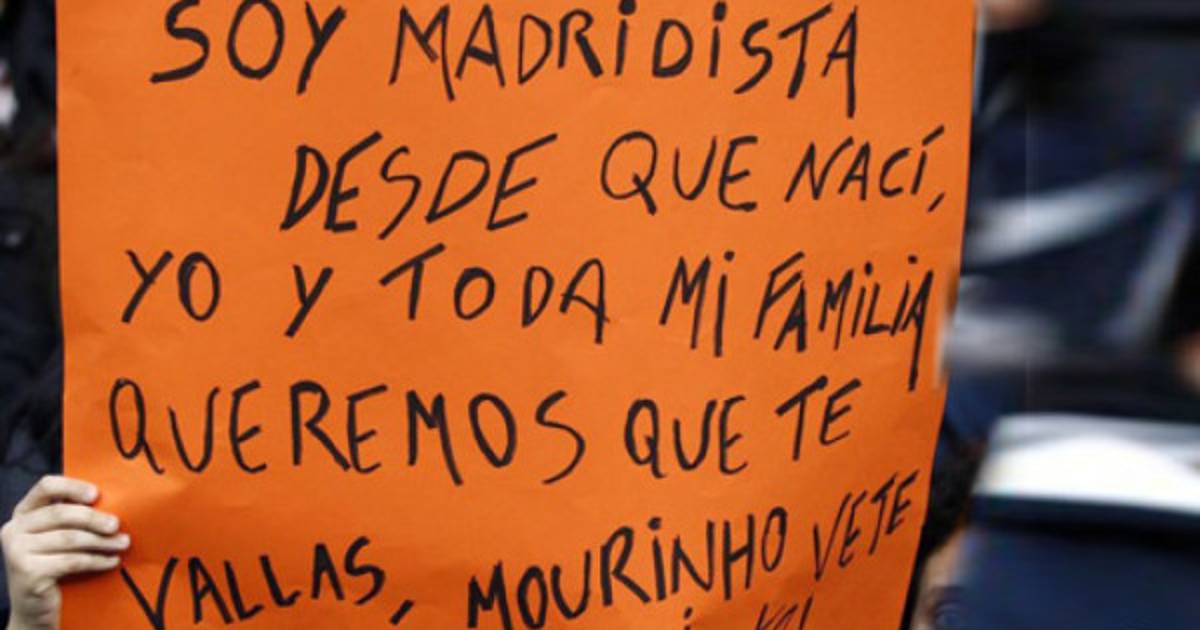 SOY MADRIDISTA
DESDE QUE NACÍ,
YO Y TODA MI FAMILIA
QUEREMOS QUE TE
VALLAS, MOURINHO VETE